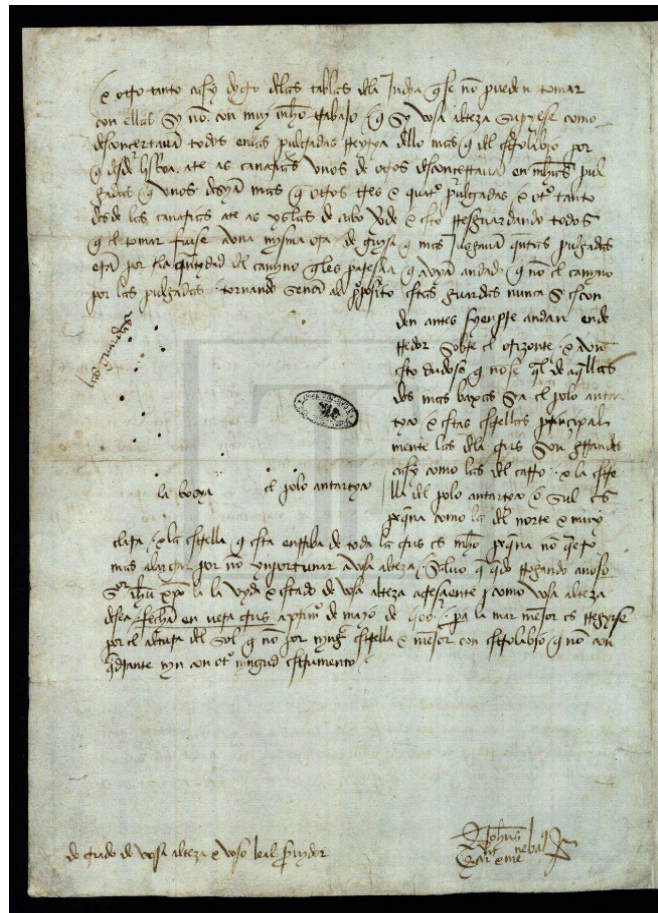 e otro tanto casy digo de las tablas de la India q se non pueden tomar
con ellas sy non con muy mho trabajo q sy vosa alteza supyese como
desconcertavan todos en las pulgadas reyrya dello mas q del estrolabio por
q desde lisboa ate as canarias unos de otros desconcertavan en mhas pul
gadas q unos desyan mas q otros tres e quatro pulgadas e otro tanto
desde las canarias ate as yslas de cabo verde e esto rresguardando todos
q el tomar fuese a una mysma ora de guysa q mas jusgavan quantas pulgadas
eran por la quantydad del camyno q les paresçia q avyan andado q non el camyno
por las pulgadas tornando señor al proposito estas guardas nunca se escon
den antes syenpre andan en de
rredor sobre el orizonte e aun
esto dudoso q no se ql de aqllas
dos mas baxas sea el polo antar
tyco e estas estrellas principal
mente las de la crus son grandes
casy como las del carro e la estre
lla del polo antartyco o sul es
pequena como la del norte e muy
clara e la estrella q esta en rriba de toda la crus es mho pequena non quero
mas alargar por non ynportunar a vosa alteza salvo q quedo rrogando a noso
sor ihu xpo la vyda e estado de vosa alteza acresiente como vosa alteza
desea fecha en vera crus a primo de mayo de 500 pa la mar mejor es regyrse
por el altura del sol q non por nynga estrella e mejor con estrolabio q non con
qdrante nyn con otro nyngud estrumento
las guardas
la bosya
el polo antartyco
do criado de vosa alteza e voso leal servydor
Johans